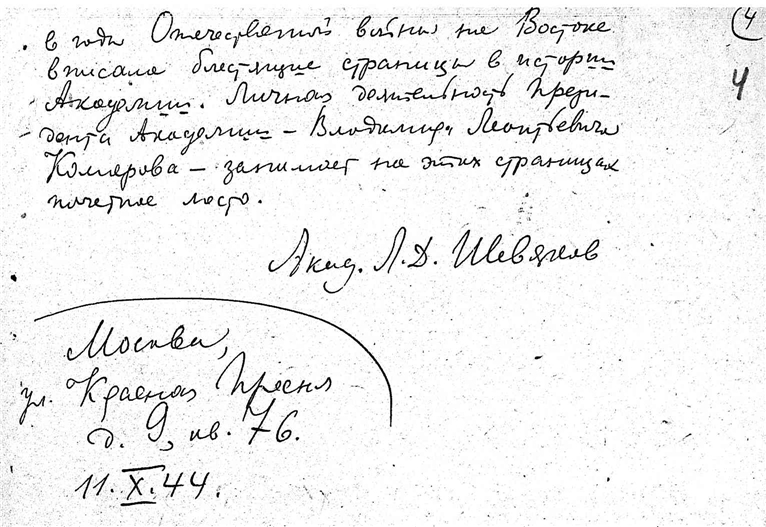 (4
4
в годы Отечественной войны на Востоке
вписала блестящие страницы в историю
Академии. Личная деятельность Прези-
дента Академии – Владимира Леонтьевича
Комарова – занимает на этих страницах
почетное место.
Акад. Л.Д. Шевяков
Москва,
ул. Красная Пресня
д. 9, кв. 76.
11.X.44.